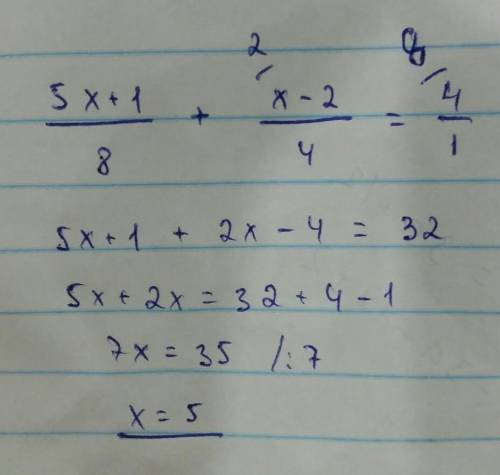 2 8
5x+1/8 + x-2/4 = 4/1
5x+1 + 2x-4 = 32
5x+2x = 32+4-1
7x = 35 /:7
x = 5